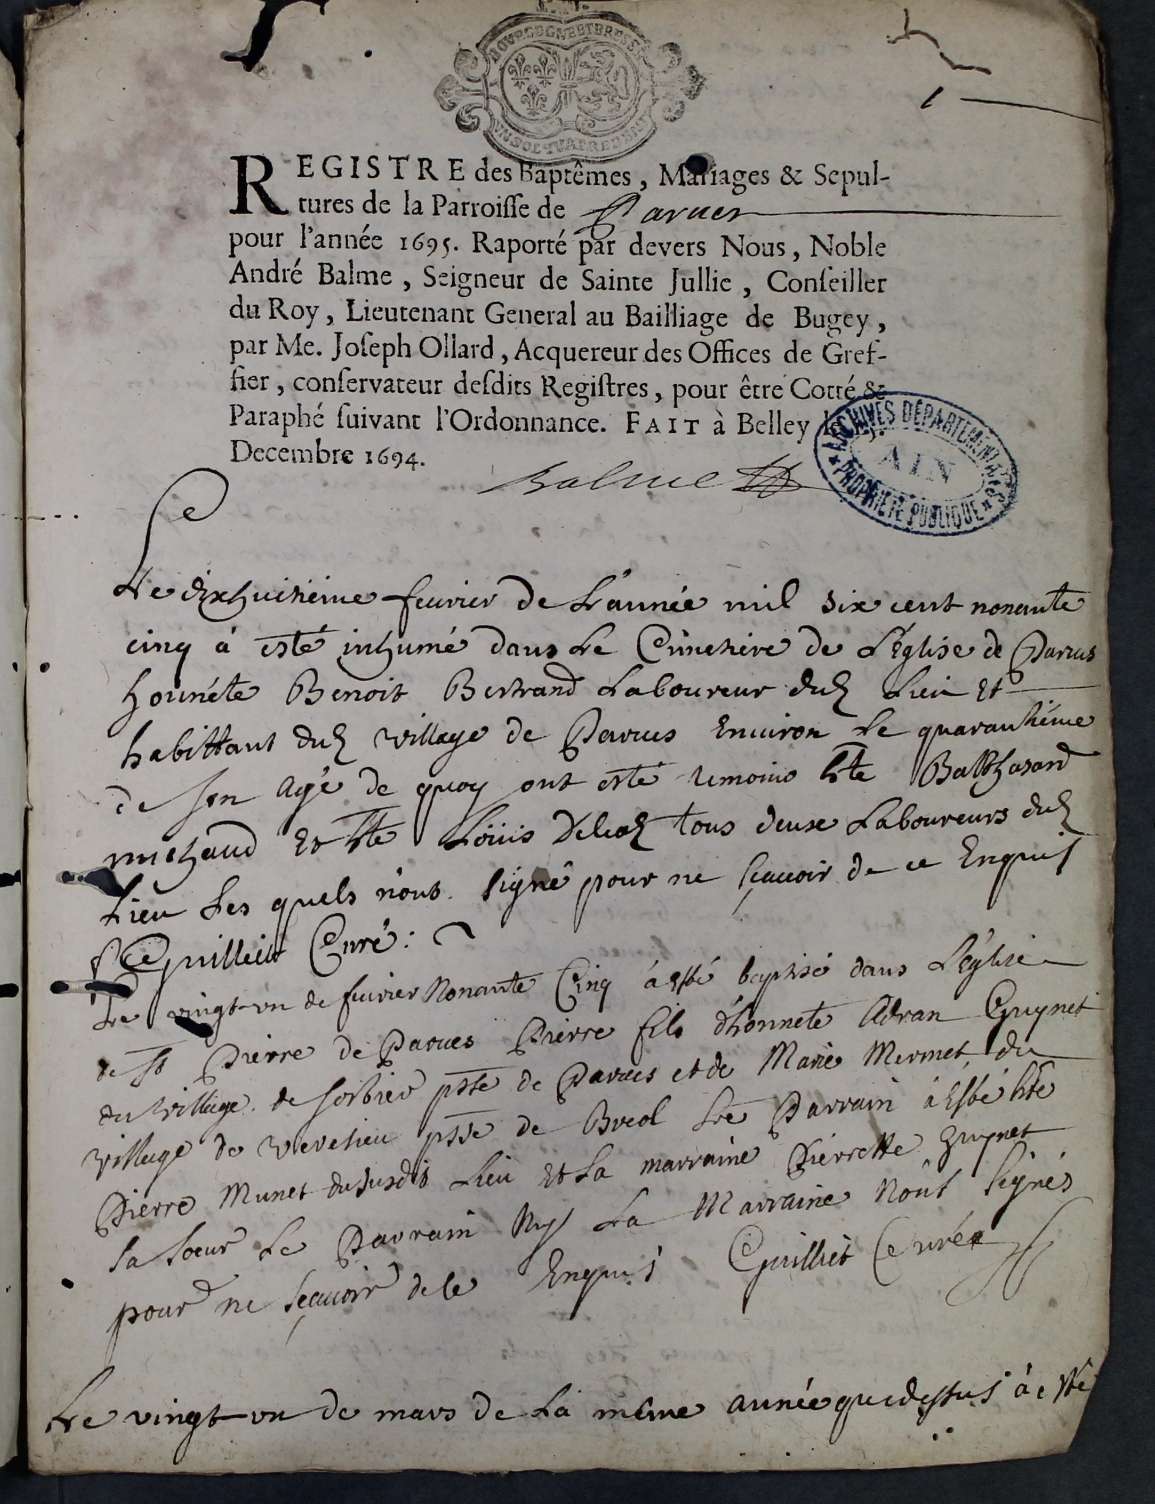 BOURGOGNE ET BRESSE
1
REGISTRE des Baptêmes, Mariages & Sepul-
tures de la Parroisse de Parues
pour l'année 1695. Raporté par devers Nous, Noble
André Balme, Seigneur de Sainte Jullie, Conseiller
du Roy, Lieutenant General au Bailliage de Bugey,
par Me. Joseph Ollard, Acquereur des Offices de Gref-
fier, conservateur desdits Registres, pour être Cotté &
Paraphé suivant l'Ordonnance. FAIT à Belley
Decembre 1694.
Balme
ARCHIVES DÉPARTEMENTALES
AIN
PROPRIÉTÉ PUBLIQUE
Le dixhuitiéme feurier de L'année mil six cent nonante
cinq à esté inhumé dans Le Cimetiére de L'Eglise de Parues
honnéte Benoit Bertrand Laboureur dud Lieu Et
habittant dud village de Parues Enuiron Le quarantiéme
de son agé de quoy ont esté temoins hte Balthazard
michaud Et hte Loüis tous deux Laboureurs dud
Lieu Les quels n'ont signé pour ne sçauoir de ce Enquis
Guilliet Curé:
Le vingt-un de feurier Nonante Cinq à esté baptisé dans L'églize
de st Pierre de Parues Pierre fils d'honnete Adran Guynet
du village de sorbier psse de Parues et de Marie Mermet du
village de vevelieu psse de Breol Le Parrain à Esté hte
Pierre Munet du susdit Lieu Et La marraine Pierrette guynet
sa soeur Le Parrain Ny La Marraine N'ont signés
pour ne sçauoir de le Enquis Guilliet Curé
Le vingt-un de mars de La méme année que dessus à esté